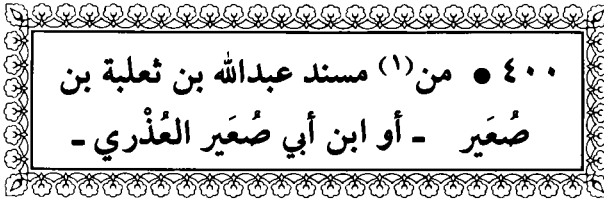 ٤٠٠ ● من(١) مسند عبدالله بن ثعلبة بن
صُعَير ـ أو ابن أبي صُعَير العُذْري ـ